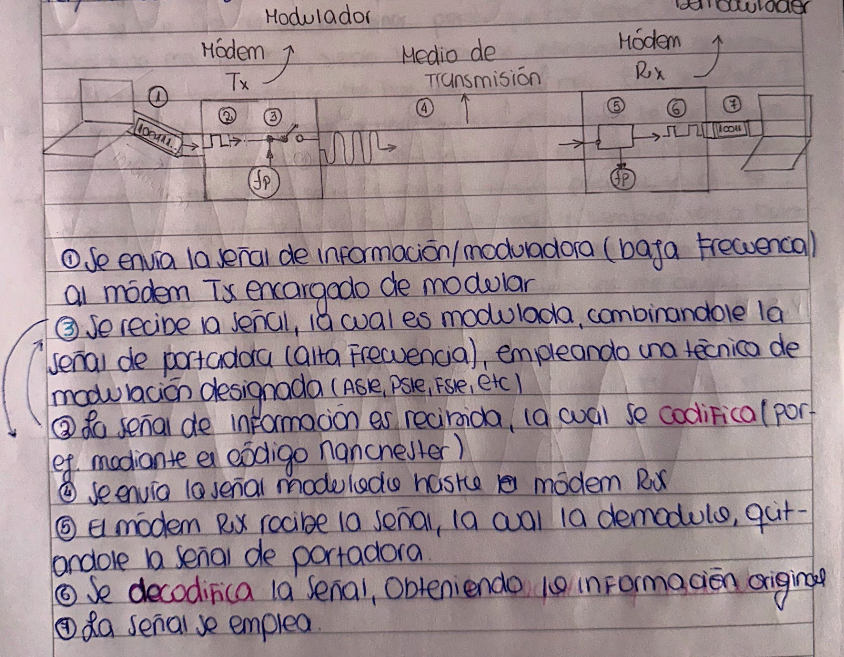 Modulador
Demodulador
Módem
Tx
Medio de
Transmisión
Módem
Rx
① ② ③ ④ ⑤ ⑥ ⑦
10011..
fp
fp
1001
① Se envía la señal de información/moduladora (baja Frecuencia)
al módem Tx encargado de modular
③ Se recibe la señal, la cual es modulada, combinandole la
señal de portadora (alta Frecuencia), empleando una técnica de
modulación designada (ASK, PSK, FSK, etc)
② La señal de información es recibida, la cual se codifica (por-
ej. mediante el código Manchester)
④ Se envía la señal modulada hasta el módem Rx
⑤ El módem Rx recibe la señal, la cual la demodula, quit-
andole la señal de portadora.
⑥ Se decodifica la señal, obteniendo la información original
⑦ La señal se emplea.